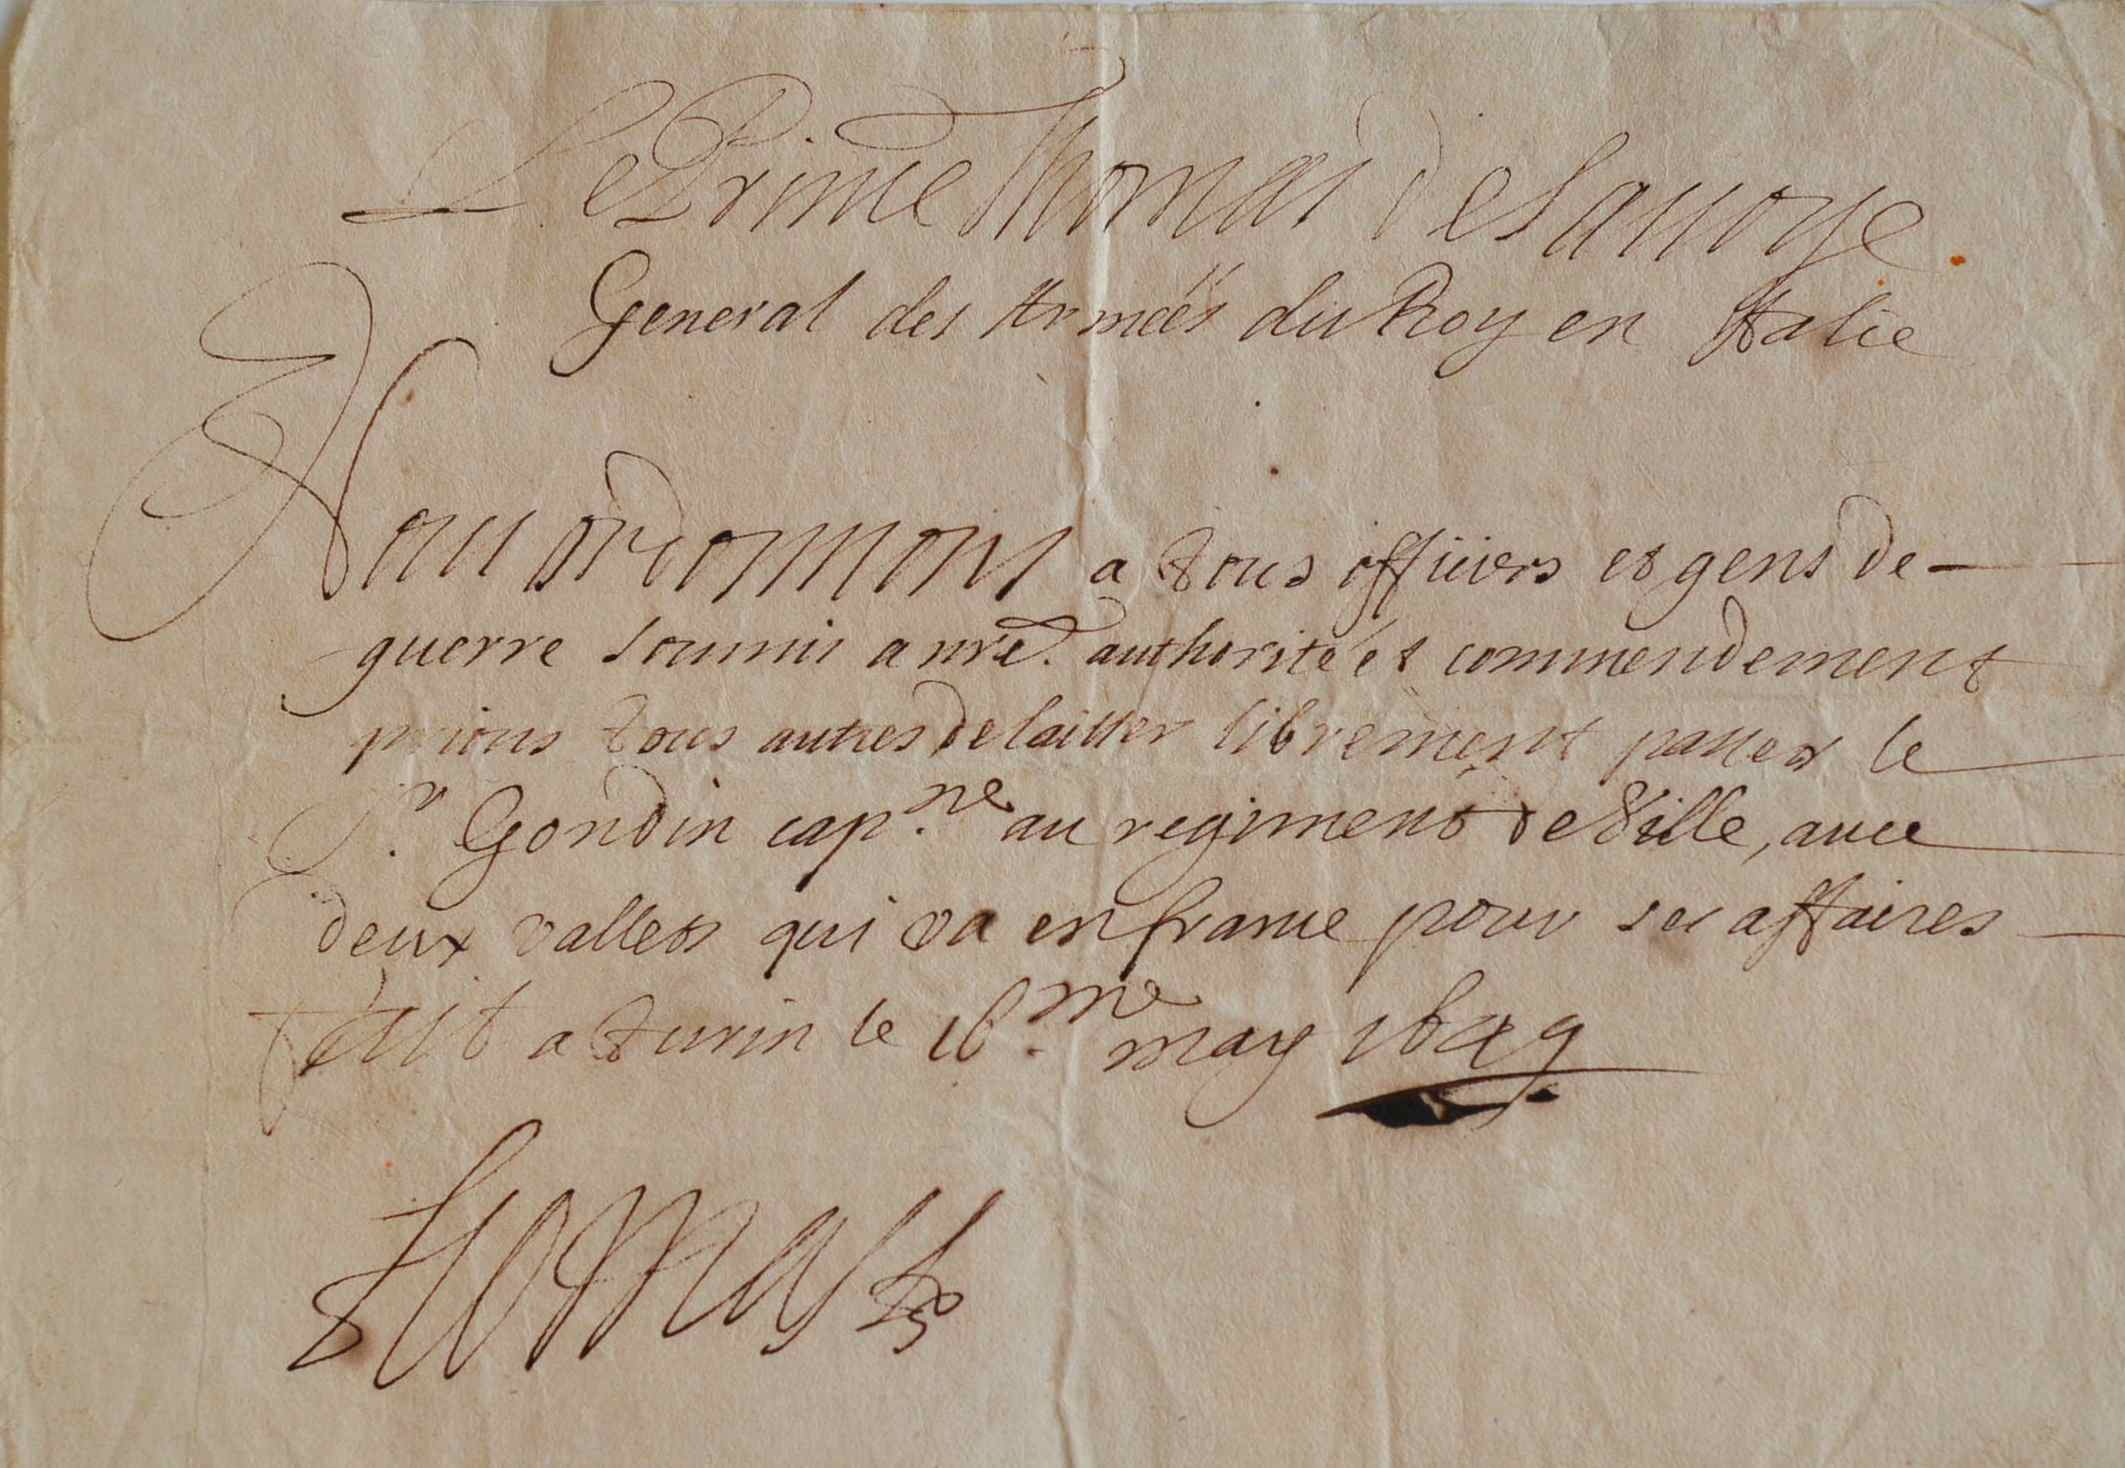 Le Prince Thomas de Sauoye
General des Armées du Roy en Italie
Nous ordonnons a tous officiers et gens de
guerre soumis a nre. authorité et commendement
prions tous autres de laisser librement passer le
Sr. Gondin cap.ne au regiment de Ville, auec
deux vallets qui va en france pour ses affaires
fait a turin le 16.me may 1649
Thomas